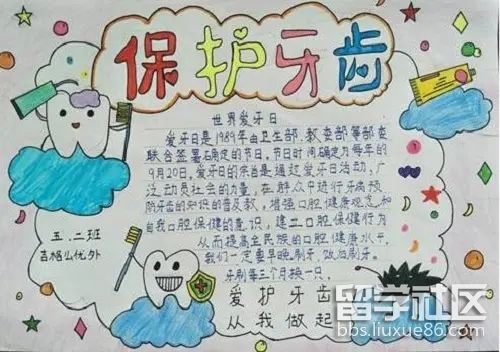 保护牙齿
世界爱牙日
爱牙日是1989年由卫生部、教委部等部委
联合签署确定的节日,节日时间确定为每年的
9月20日,爱牙日的宗旨是通过爱牙日活动,广
泛动员社会的力量,在群众中进行牙病预
防牙齿的知识的普及教,增强口腔健康观念和
自我口腔保健的意识,建立口腔保健行为
从而提高全民族的口腔健康水平。
我们一定要早晚刷牙,饭后刷牙。
牙刷每三个月换一只。
五.二班
吉格么优外
爱护牙齿
从我做起
留学社区
bbs.liuxue86.com